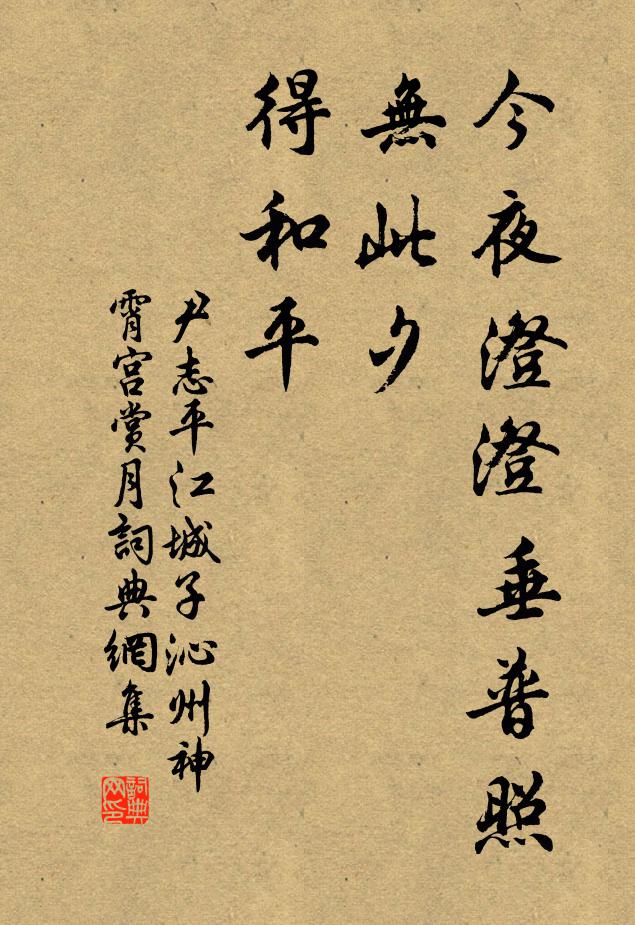 今夜澄澄垂普照
無此夕
得和平
尹志平江城子沁州神
霄宮賞月詞典網集
詞典網印